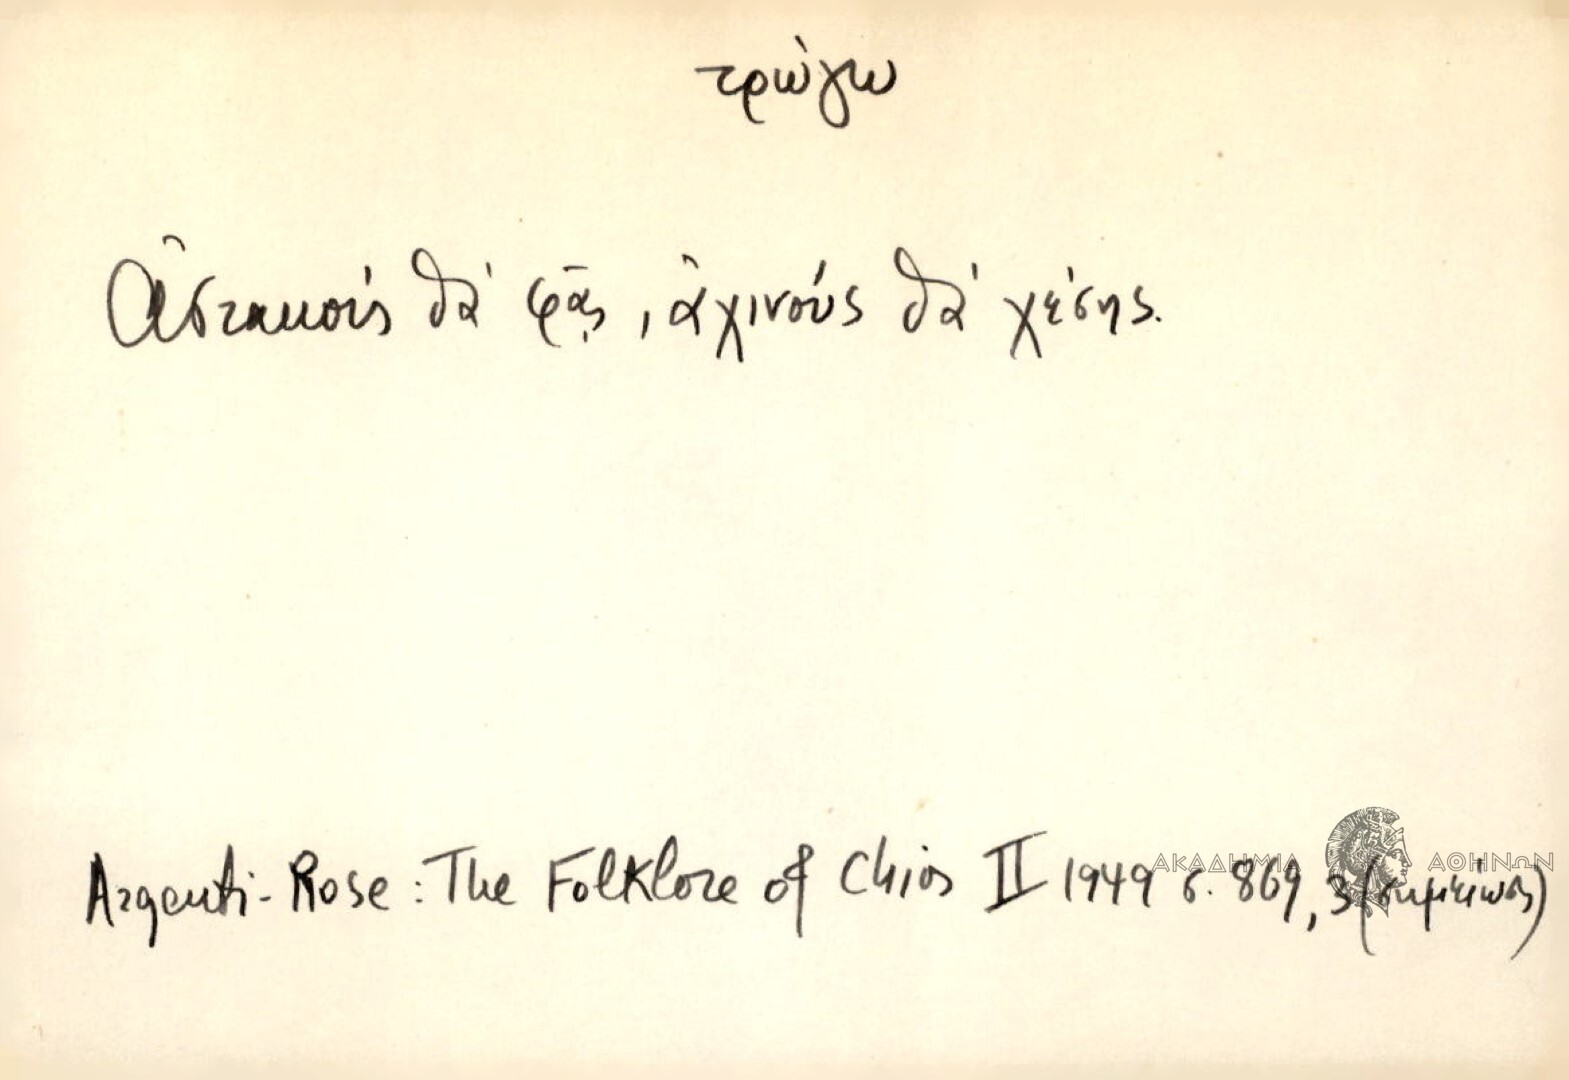 τρώγω
Ἀστακούς θά φᾷς, ἀχινούς θά χέσης.
Argenti-Rose: The Folklore of Chios II 1949 σ. 869, 3 (σημείωσις)
ΑΚΑΔΗΜΙΑ ΑΘΗΝΩΝ